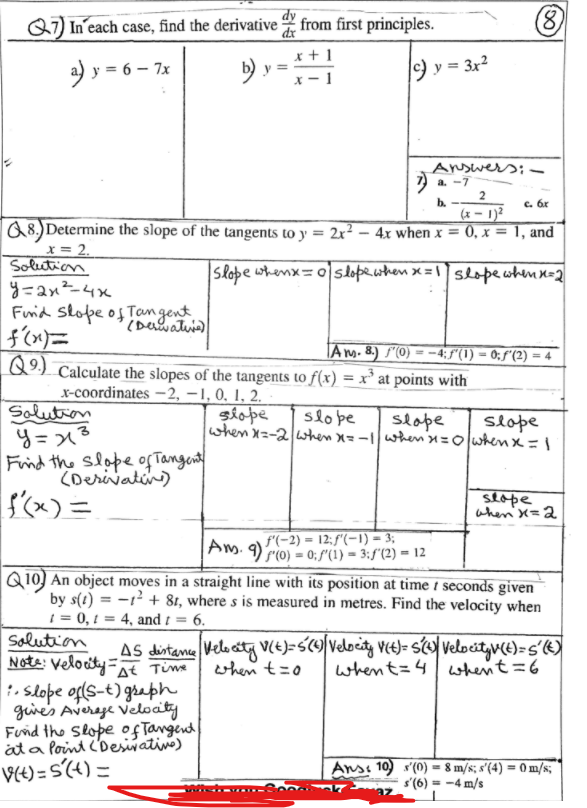 Q7) In each case, find the derivative dy/dx from first principles.
8
a) y = 6 – 7x
b) y = (x + 1)/(x – 1)
c) y = 3x²
Answers:–
7) a. –7
b. –2/(x – 1)² c. 6x
Q8.) Determine the slope of the tangents to y = 2x² – 4x when x = 0, x = 1, and
x = 2.
Solution
y = 2x² – 4x
Find slope of Tangent
(Derivative)
f'(x) =
slope when x = 0
slope when x = 1
slope when x = 2
Ans. 8.) f'(0) = –4; f'(1) = 0; f'(2) = 4
Q9.) Calculate the slopes of the tangents to f(x) = x³ at points with
x-coordinates –2, –1, 0, 1, 2.
Solution
y = x³
Find the slope of Tangent
(Derivative)
f'(x) =
slope
when x = -2
slope
when x = -1
slope
when x = 0
slope
when x = 1
slope
when x = 2
Ans. 9) f'(–2) = 12; f'(–1) = 3;
f'(0) = 0; f'(1) = 3; f'(2) = 12
Q10) An object moves in a straight line with its position at time t seconds given
by s(t) = –t² + 8t, where s is measured in metres. Find the velocity when
t = 0, t = 4, and t = 6.
Solution
Note: Velocity = ΔS/Δt distance/Time
∴ slope of (S-t) graph
gives Average Velocity
Find the slope of Tangent
at a Point (Derivative)
V(t) = S'(t) =
Velocity V(t) = S'(t)
when t = 0
Velocity V(t) = S'(t)
when t = 4
Velocity V(t) = S'(t)
when t = 6
Ans: 10) s'(0) = 8 m/s; s'(4) = 0 m/s;
s'(6) = –4 m/s